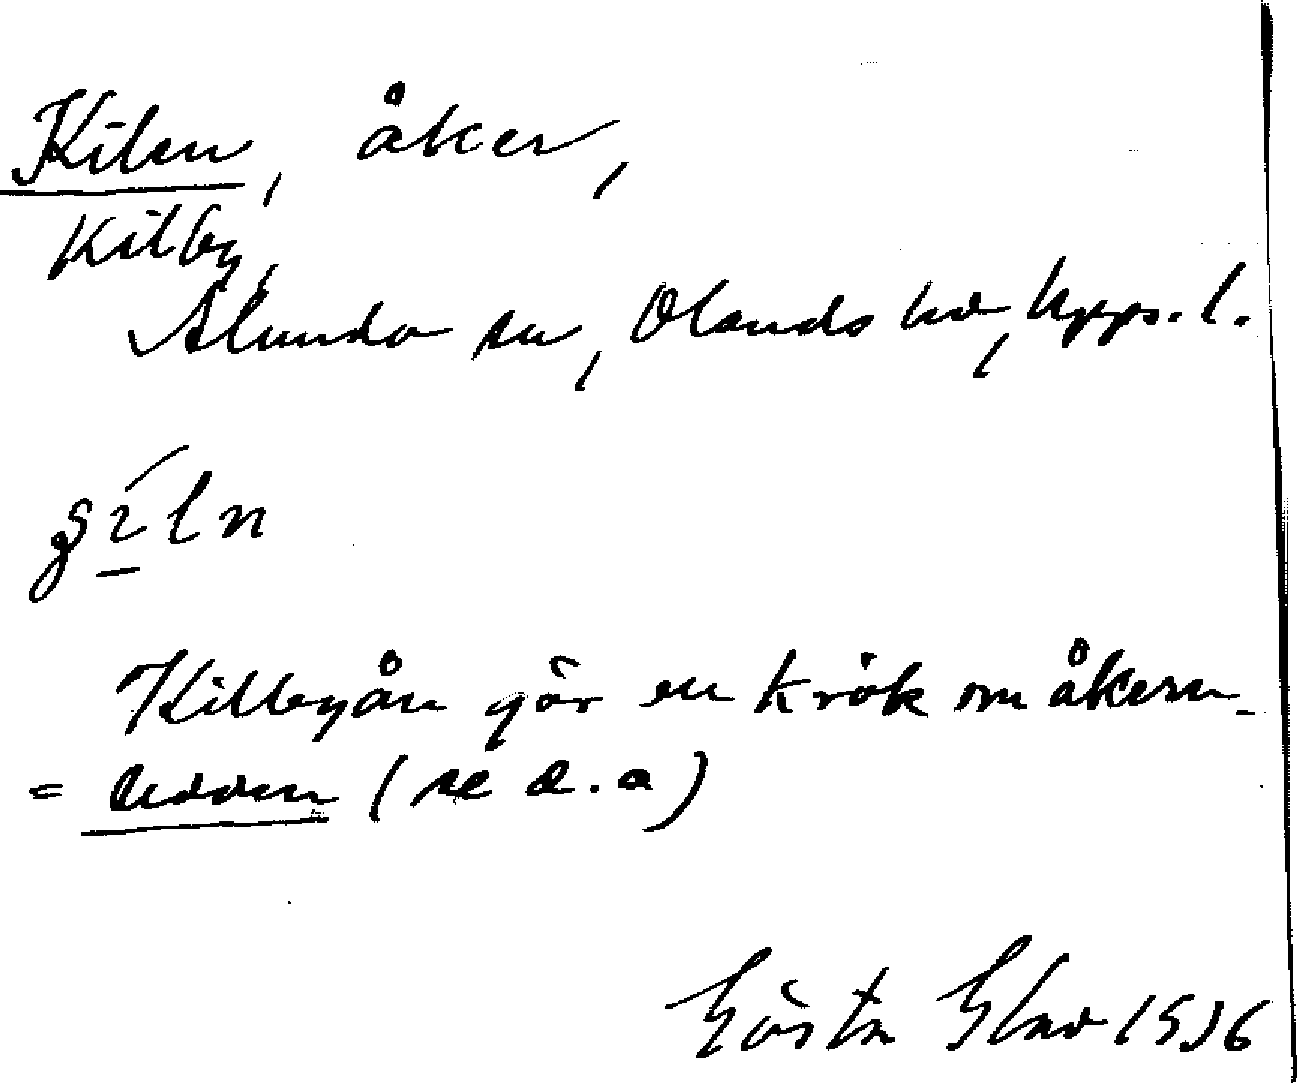 Kilen, åker,
Kilby,
Alunda sn, Olands hd, Upps. l.
Killbyån gör en krök om åkern.
= Udden (se d. o)
Gösta Glad 1936